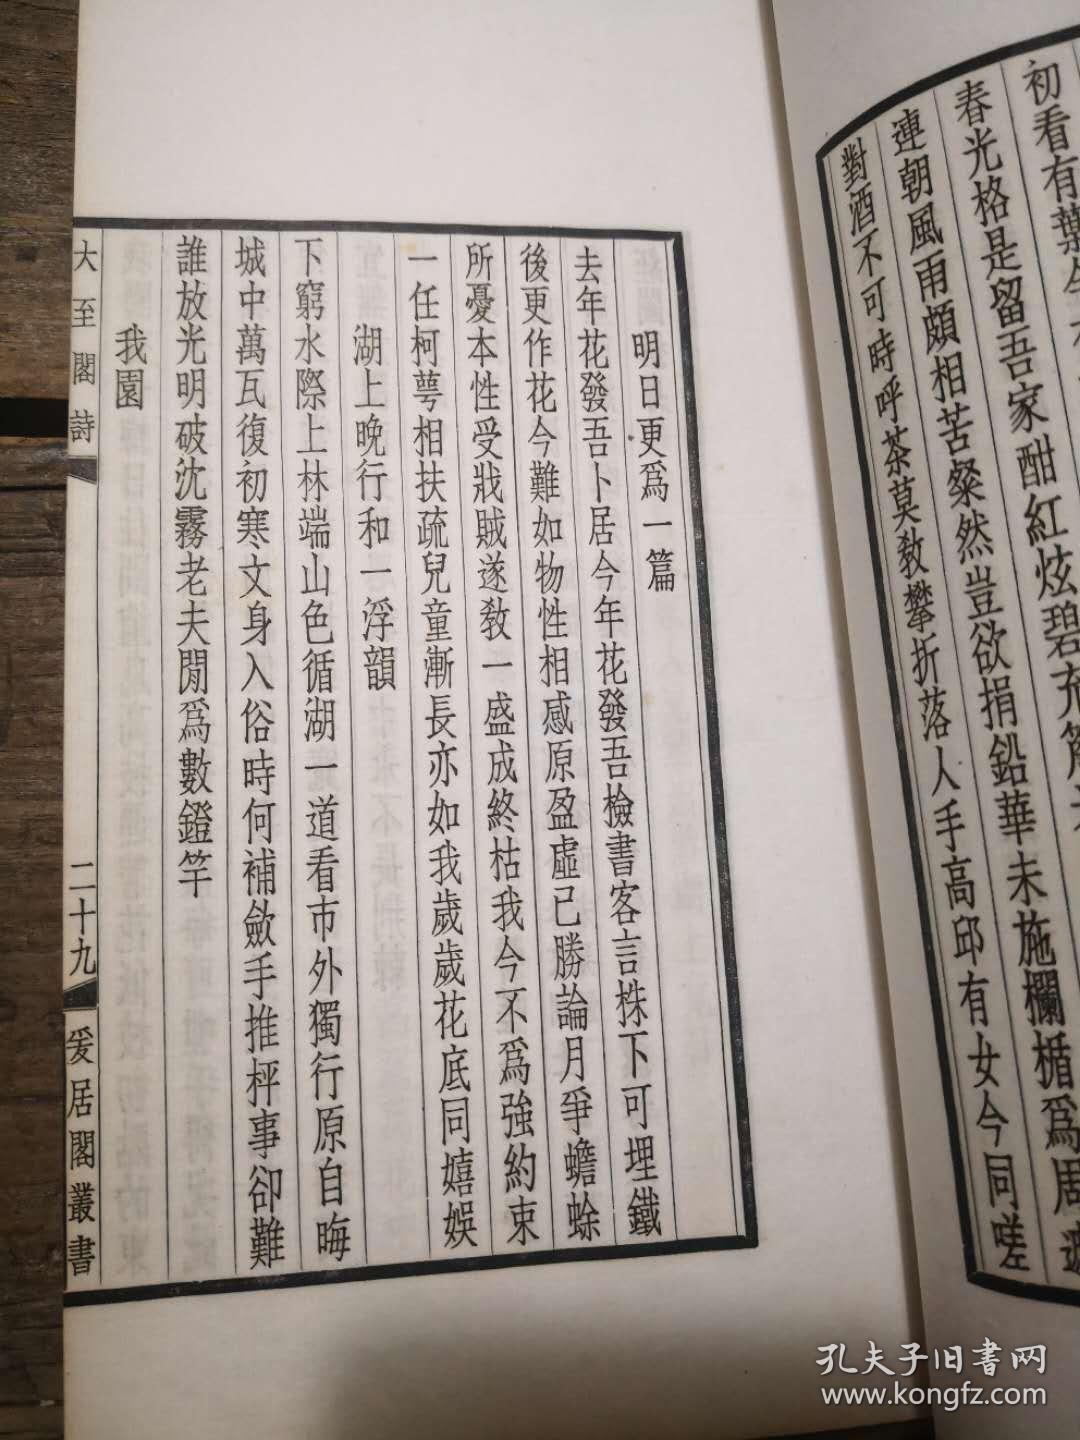 初看有葉
春光格是留吾家酣紅炫碧充
連朝風雨頗相苦粲然豈欲捐鉛華未施欄楯爲周遮
對酒不可時呼茶莫教攀折落人手高邱有女今同嗟
明日更爲一篇
去年花發吾卜居今年花發吾檢書客言株下可埋鐵
後更作花今難如物性相感原盈虛已勝論月爭蟾蜍
所憂本性受戕賊遂教一盛成終枯我今不爲強約束
一任柯萼相扶疏兒童漸長亦如我歲歲花底同嬉娛
湖上晚行和一浮韻
下窮水際上林端山色循湖一道看市外獨行原自晦
城中萬瓦復初寒文身入俗時何補歛手推枰事卻難
誰放光明破沈霧老夫閒爲數鐙竿
我園
大至閣詩
二十九
爰居閣叢書
孔夫子旧書网
www.kongfz.com